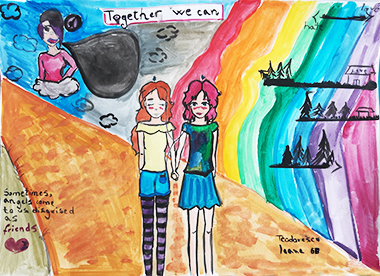 Together we can
love
hate
Sometimes,
angels come
to us disguised
as
friends
Teodorescu
Ioana 6B